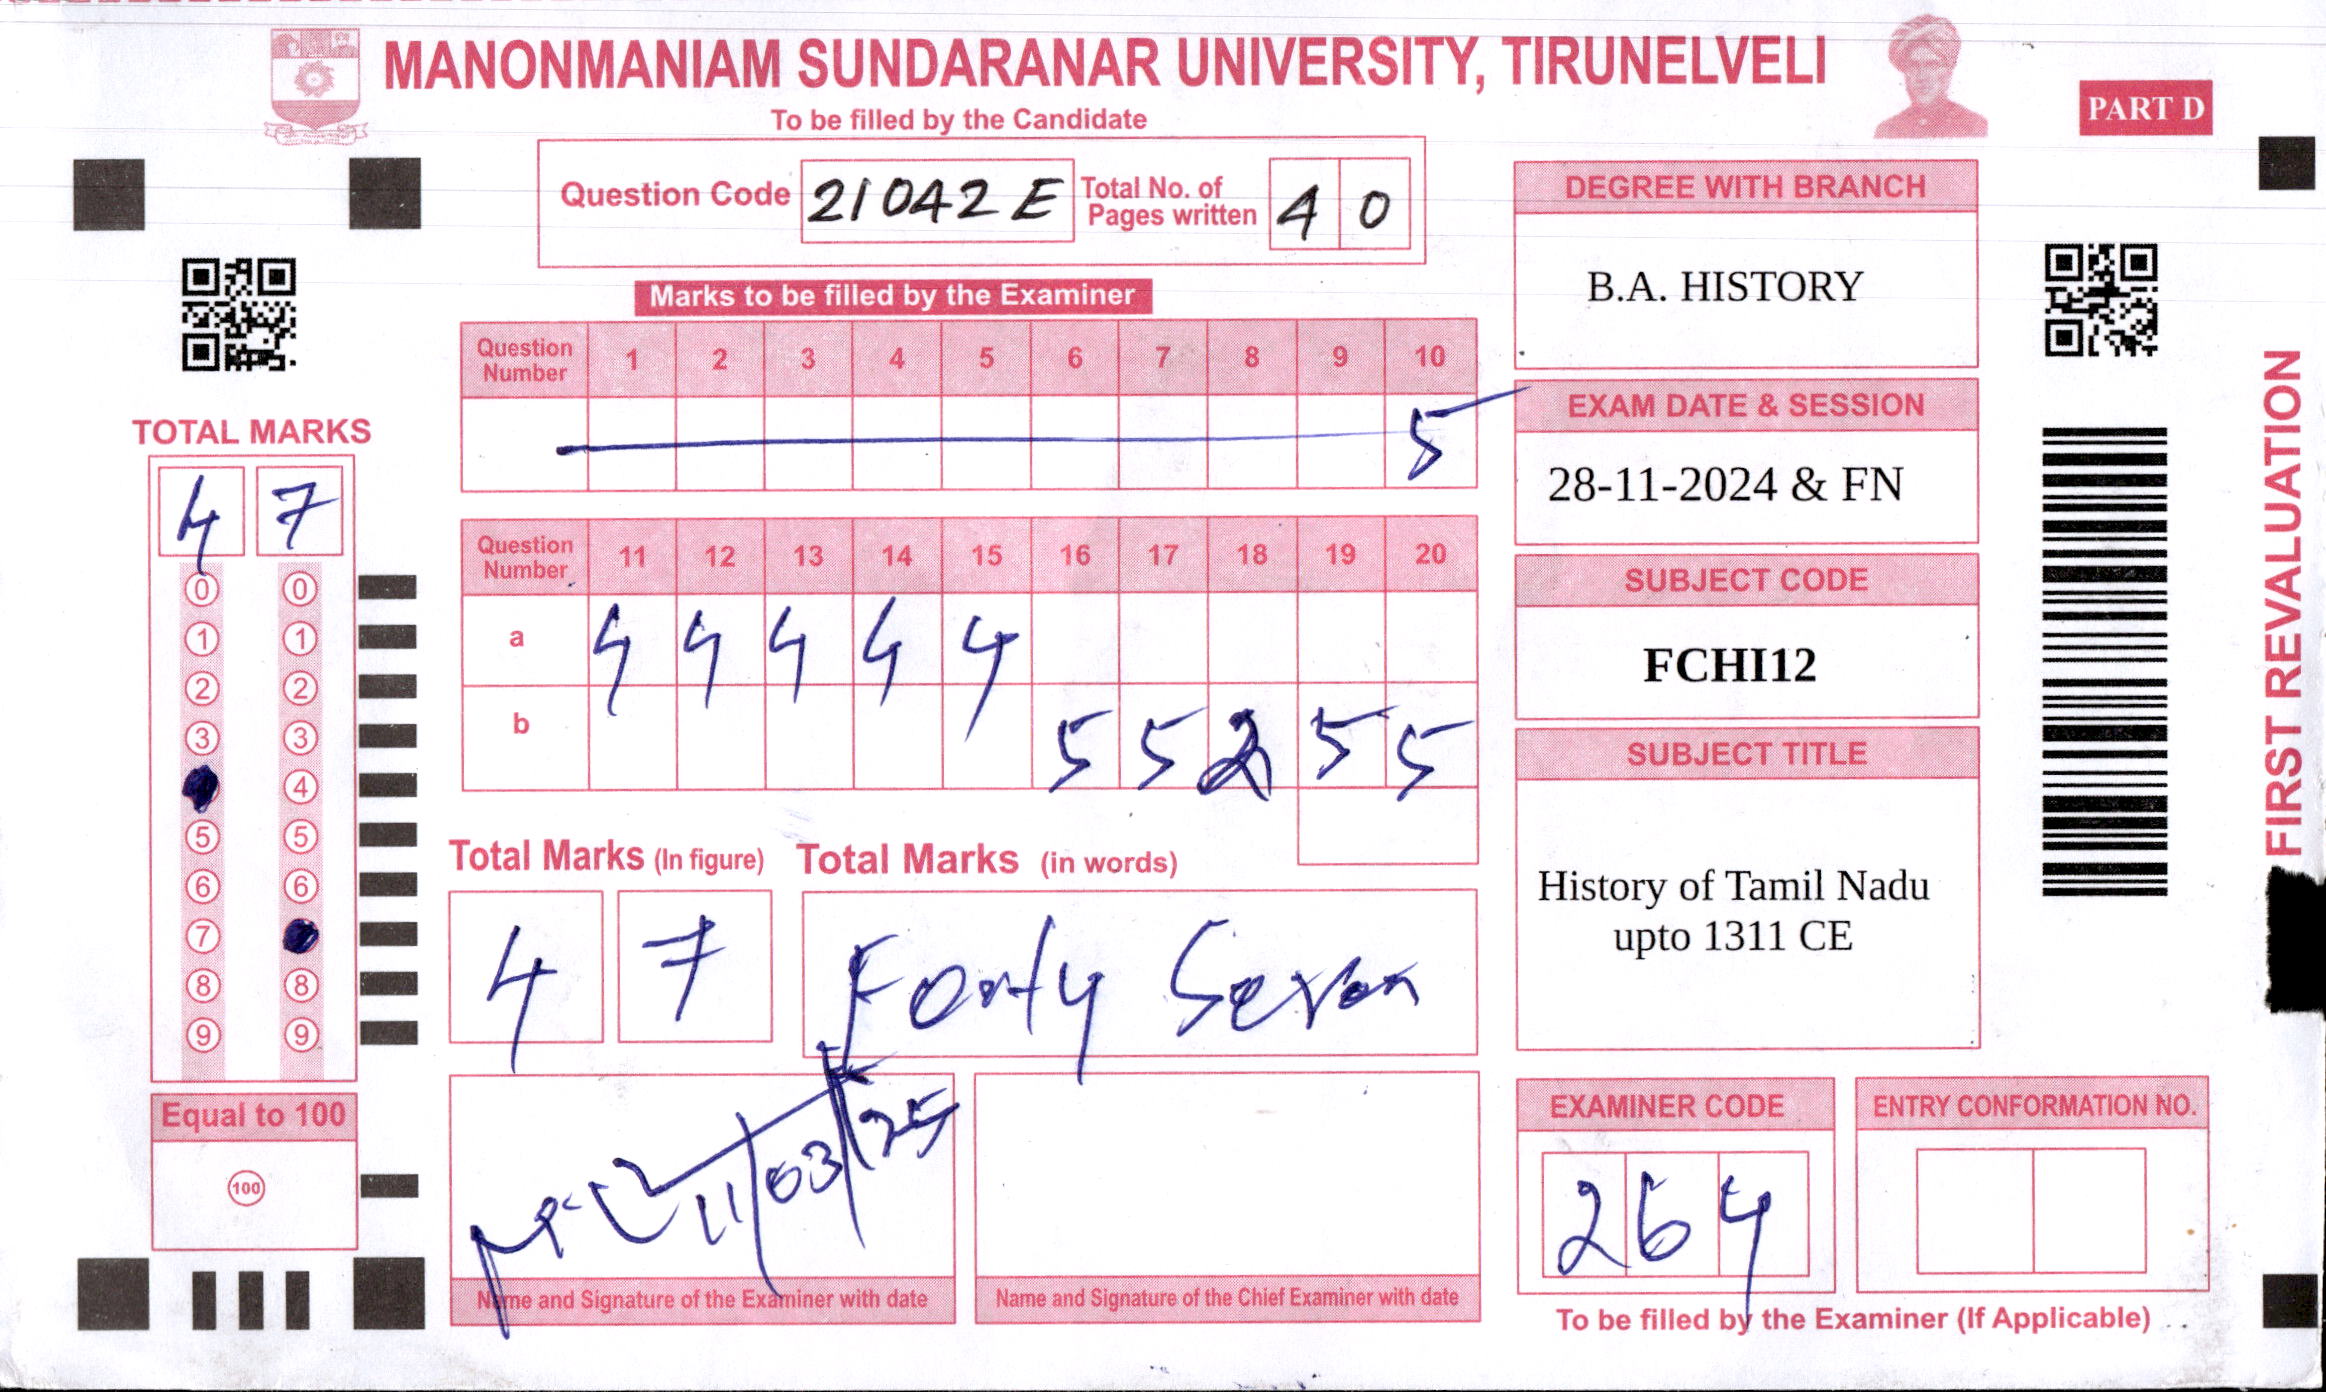 MANONMANIAM SUNDARANAR UNIVERSITY, TIRUNELVELI
PART D
To be filled by the Candidate
Question Code 21042E Total No. of Pages written 4 0
Marks to be filled by the Examiner
Question Number 1 2 3 4 5 6 7 8 9 10
5
Question Number 11 12 13 14 15 16 17 18 19 20
a 4 4 4 4 4
b 5 5 2 5 5
Total Marks (In figure) Total Marks (in words)
4 7 Forty Seven
11/03/25
Name and Signature of the Examiner with date
Name and Signature of the Chief Examiner with date
TOTAL MARKS
4 7
0 0
1 1
2 2
3 3
4
5 5
6 6
7
8 8
9 9
Equal to 100
100
DEGREE WITH BRANCH
B.A. HISTORY
EXAM DATE & SESSION
28-11-2024 & FN
SUBJECT CODE
FCHI12
SUBJECT TITLE
History of Tamil Nadu
upto 1311 CE
EXAMINER CODE
264
ENTRY CONFORMATION NO.
To be filled by the Examiner (If Applicable)
FIRST REVALUATION